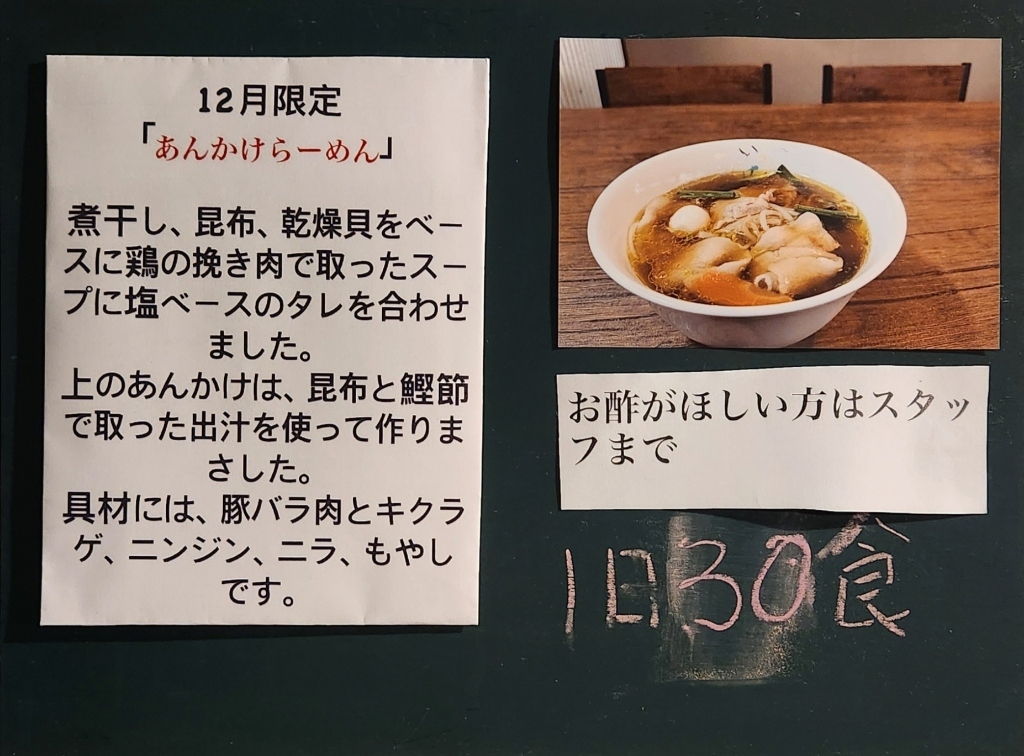 12月限定
「あんかけらーめん」
煮干し、昆布、乾燥貝をベー
スに鶏の挽き肉で取ったスー
プに塩ベースのタレを合わせ
ました。
上のあんかけは、昆布と鰹節
で取った出汁を使って作りま
さした。
具材には、豚バラ肉とキクラ
ゲ、ニンジン、ニラ、もやし
です。
お酢がほしい方はスタッ
フまで
1日30食